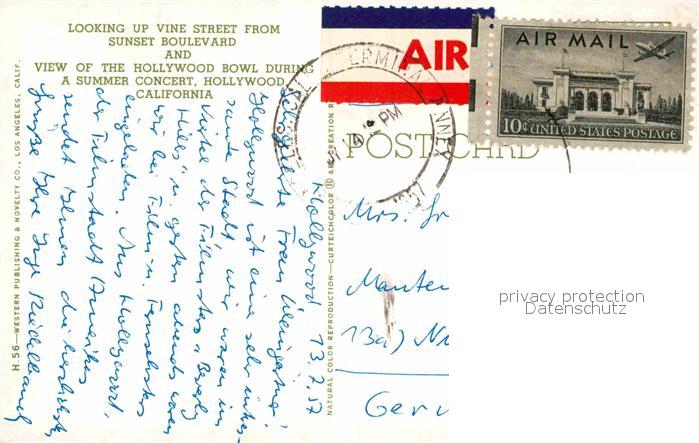 LOOKING UP VINE STREET FROM
SUNSET BOULEVARD
AND
VIEW OF THE HOLLYWOOD BOWL DURING
A SUMMER CONCERT, HOLLYWOOD
CALIFORNIA
H.56—WESTERN PUBLISHING & NOVELTY CO., LOS ANGELES, CALIF.
NATURAL COLOR REPRODUCTION—CURTEICHCOLOR ® ART CREATION
AIR
AIR MAIL
10¢ UNITED STATES POSTAGE
TERMINAL ANNEX
PM
1957
POST CARD
Hollywood 13.7.57
Frau
Hollywood ist eine sehr interes-
sante Stadt wir waren im
Viertel der Filmstars "Beverly
Hills" u. gestern abends waren
wir bei Film u. Fernsehstars
eingeladen. Aus Hollywood,
der Filmstadt Amerikas
sendet Ihnen die herzlichsten
Grüße Ihre Inge
Mrs.
13a)
privacy protection
Datenschutz